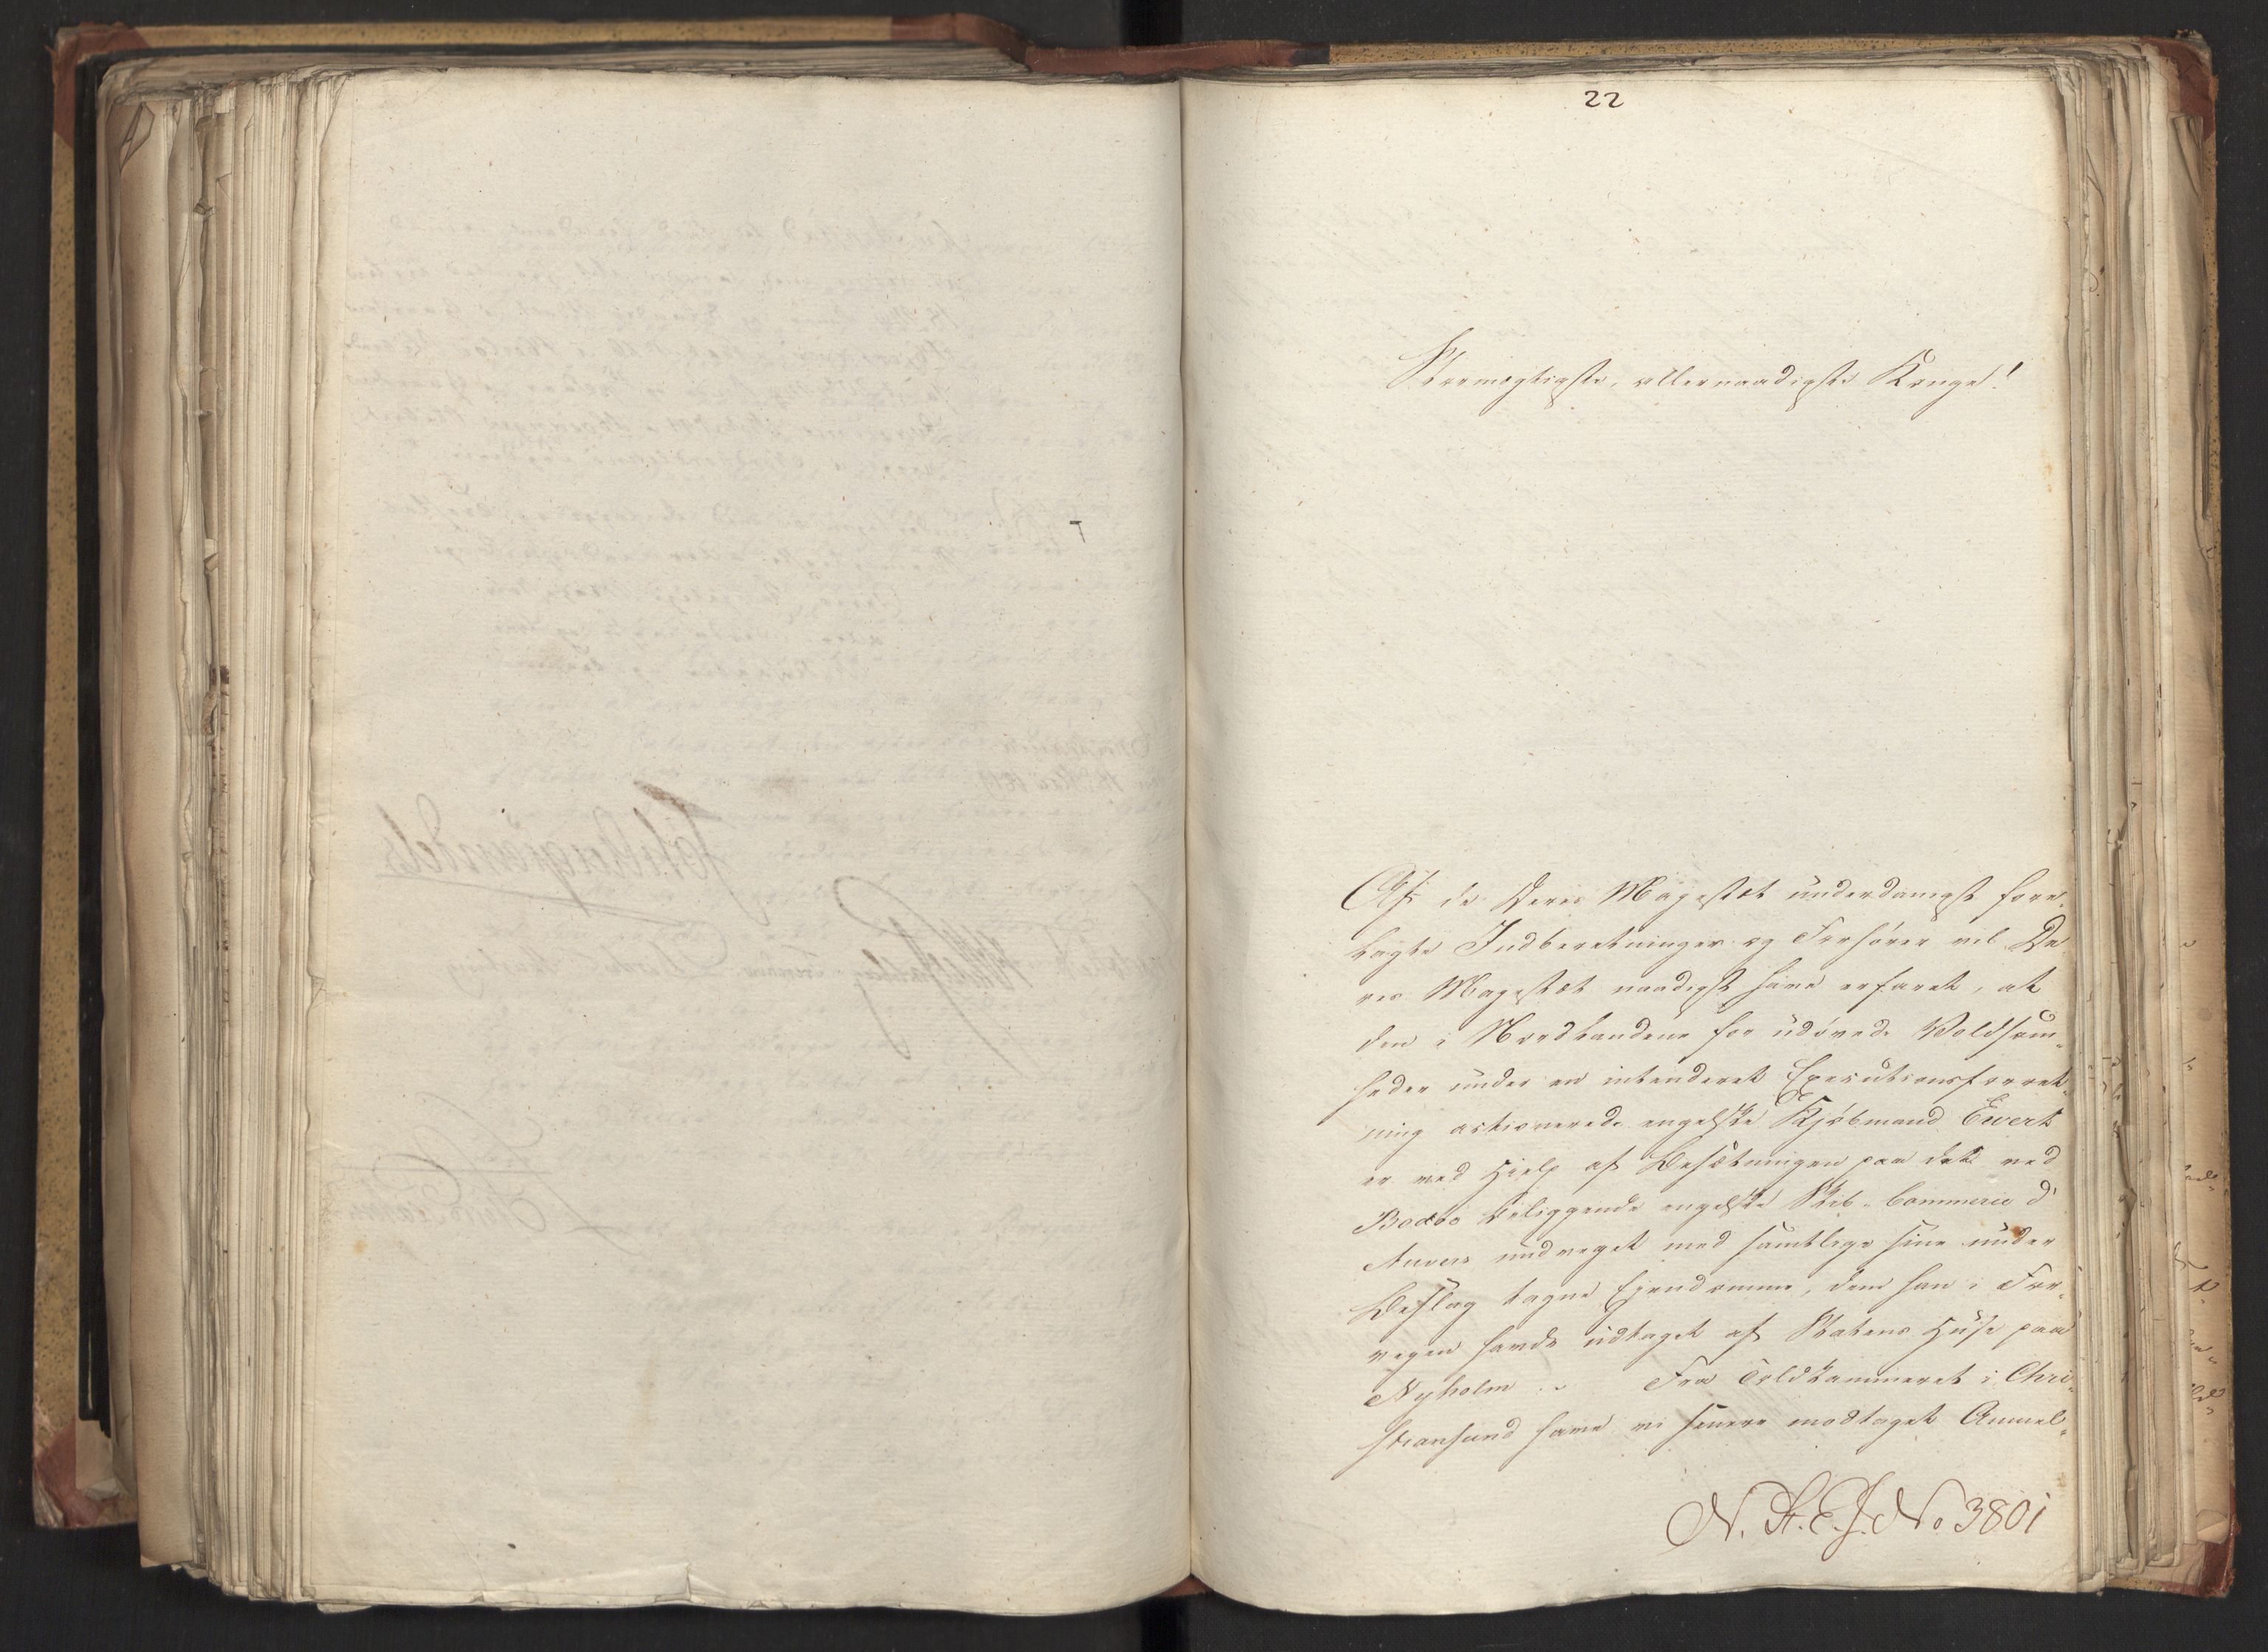 22
Stormægtigste, allernaadigste Konge!
Af de Deres Majestæt underdanigst fore-
lagte Indberetninger og Forhører vil De-
res Majestæt naadigst have erfaret, at
den i Nordlandene for udøvede Voldsom-
heder under en intenderet Executionsforret-
ning actionerede engelske Kjøbmand Everth
er ved Hjelp af Besætningen paa det ved
Bodøe beliggende engelske Skib Commerce d'
Anvers undveget med samtlige sine under
Beslag tagne Ejendomme, dem han i For-
vejen havde udtaget af Statens Huse paa
Nyholm. Fra Toldkammeret i Chri-
stiansund have vi senere modtaget Anmel-
N. St. E. J. No 3801